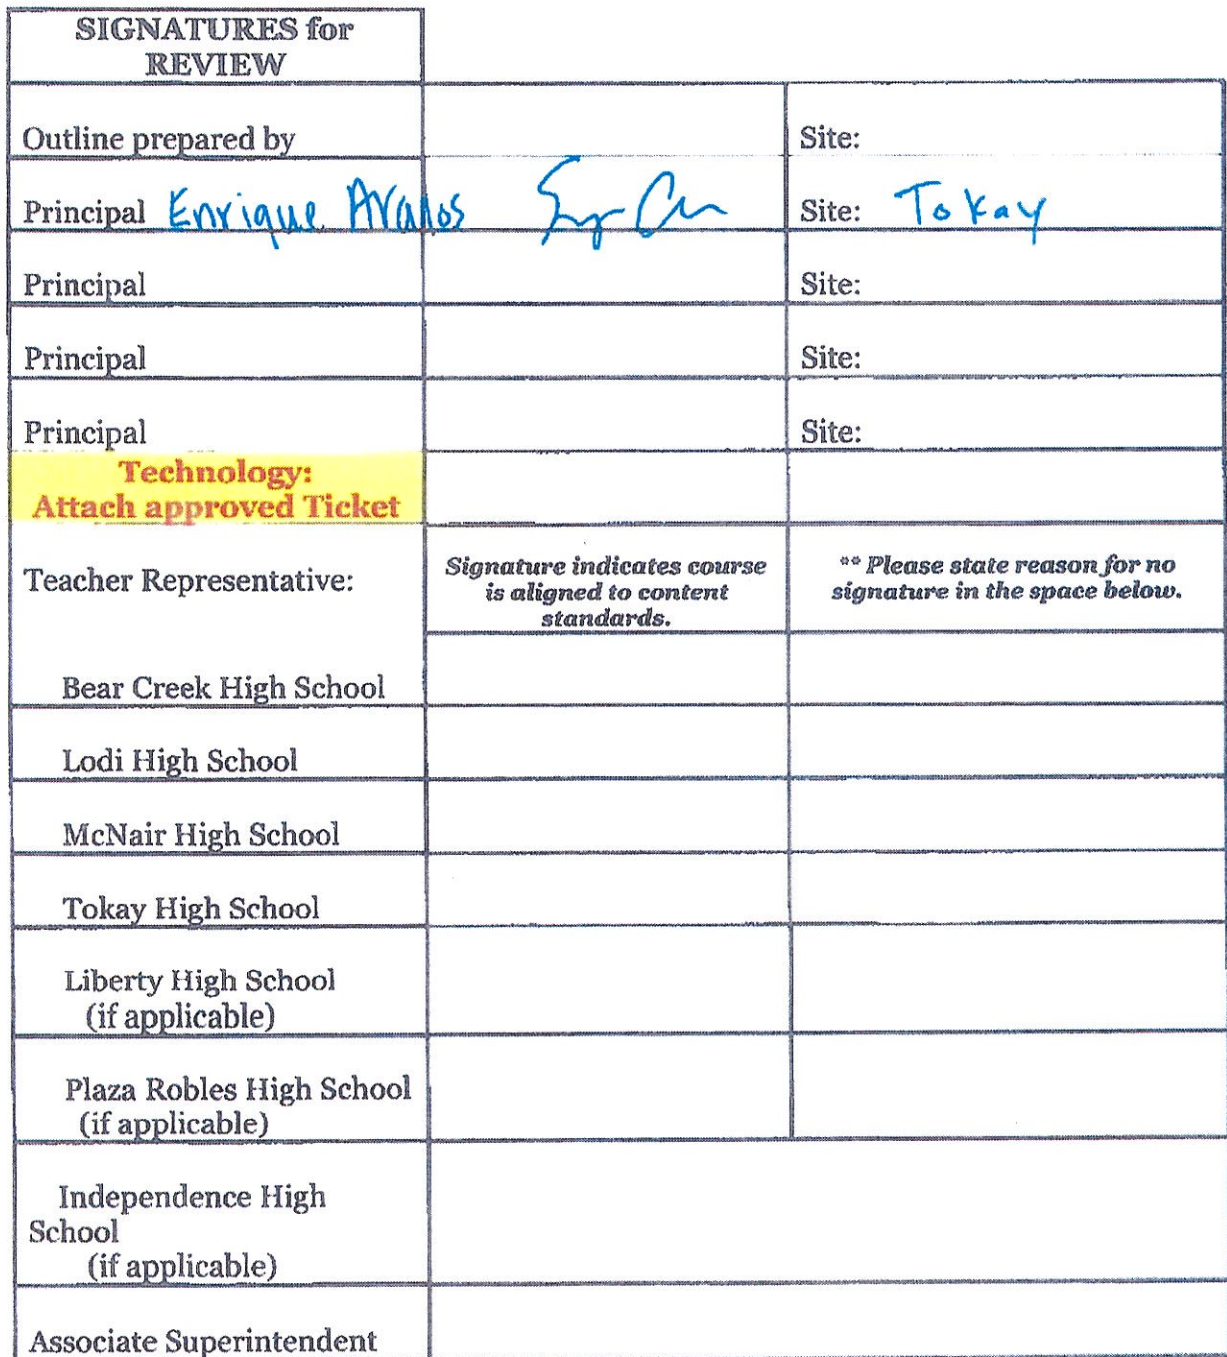 SIGNATURES for
REVIEW
Outline prepared by Site:
Principal Enrique Site: Tokay
Principal Site:
Principal Site:
Principal Site:
Technology:
Attach approved Ticket
Teacher Representative:
Signature indicates course
is aligned to content
standards.
** Please state reason for no
signature in the space below.
Bear Creek High School
Lodi High School
McNair High School
Tokay High School
Liberty High School
(if applicable)
Plaza Robles High School
(if applicable)
Independence High
School
(if applicable)
Associate Superintendent